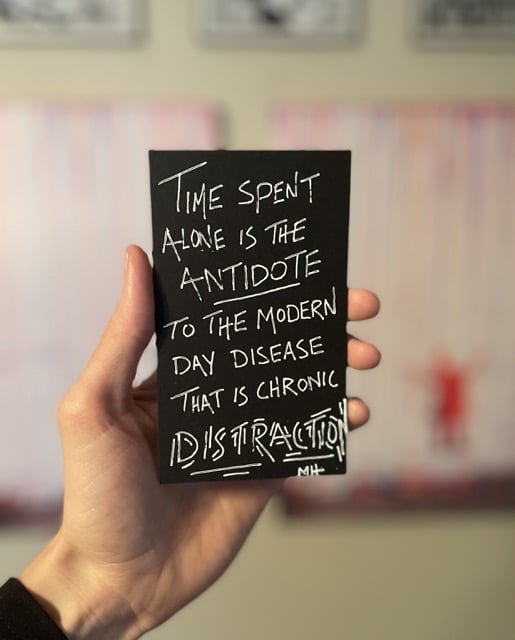 TIME SPENT
ALONE IS THE
ANTIDOTE
TO THE MODERN
DAY DISEASE
THAT IS CHRONIC
DISTRACTION
MH